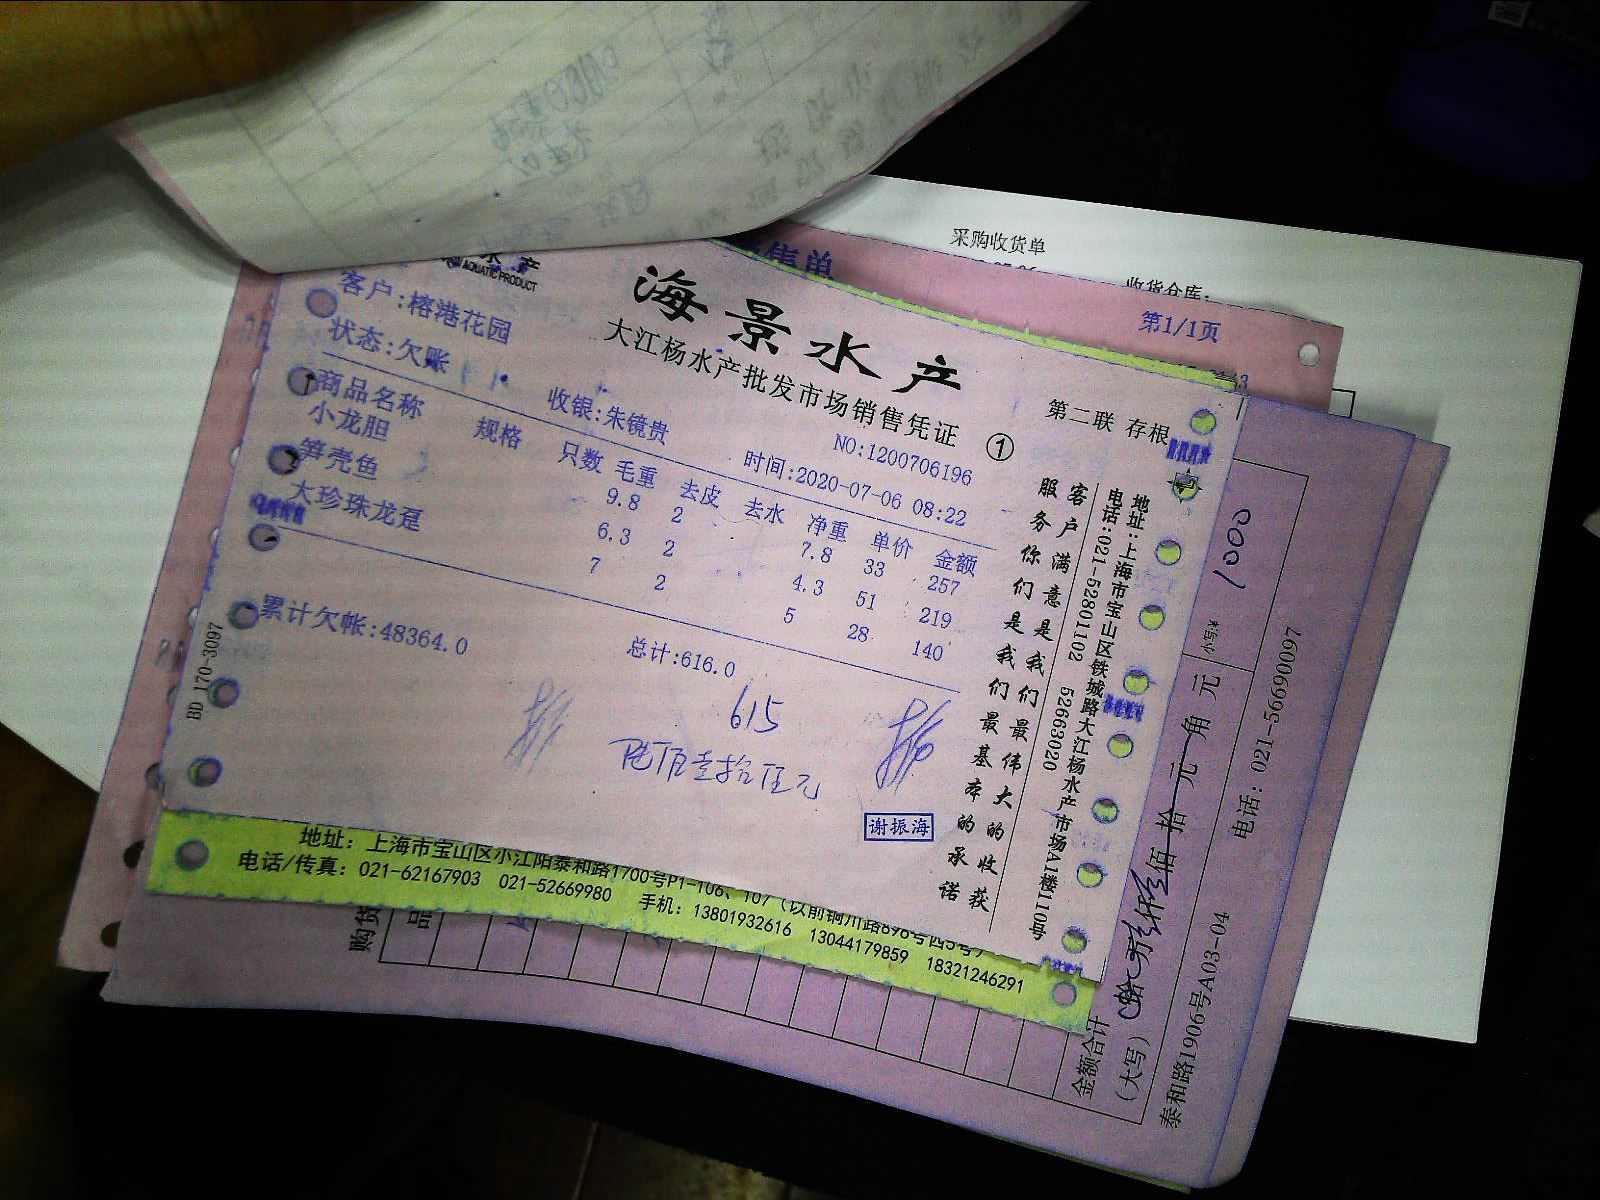 采购收货单
收货仓库:
售单
第1/1页
水产
AQUATIC PRODUCT
海景水产
大江杨水产批发市场销售凭证 ①
第二联 存根
客户:榕港花园
状态:欠账
收银:朱镜贵
NO:1200706196
时间:2020-07-06 08:22
商品名称 规格 只数 毛重 去皮 去水 净重 单价 金额
小龙胆 9.8 2 7.8 33 257
笋壳鱼 6.3 2 4.3 51 219
大珍珠龙趸 7 2 5 28 140
累计欠帐:48364.0
总计:616.0
615
陆佰壹拾伍元
谢振海
BD 170-3097
客户满意是我们最伟大的收获
服务你们是我们最基本的承诺
地址:上海市宝山区铁城路大江杨水产市场A1楼110号
电话:021-52801102 52663020
地址：上海市宝山区小江阳泰和路1700号P1-106、107（以前铜川路696号西5号）
电话/传真：021-62167903 021-52669980 手机：13801932616 13044179859 18321246291
购货
品
金额合计
(大写)
佰 拾 元 角 元
小写￥
1000
泰和路1906号A03-04 电话：021-56690097